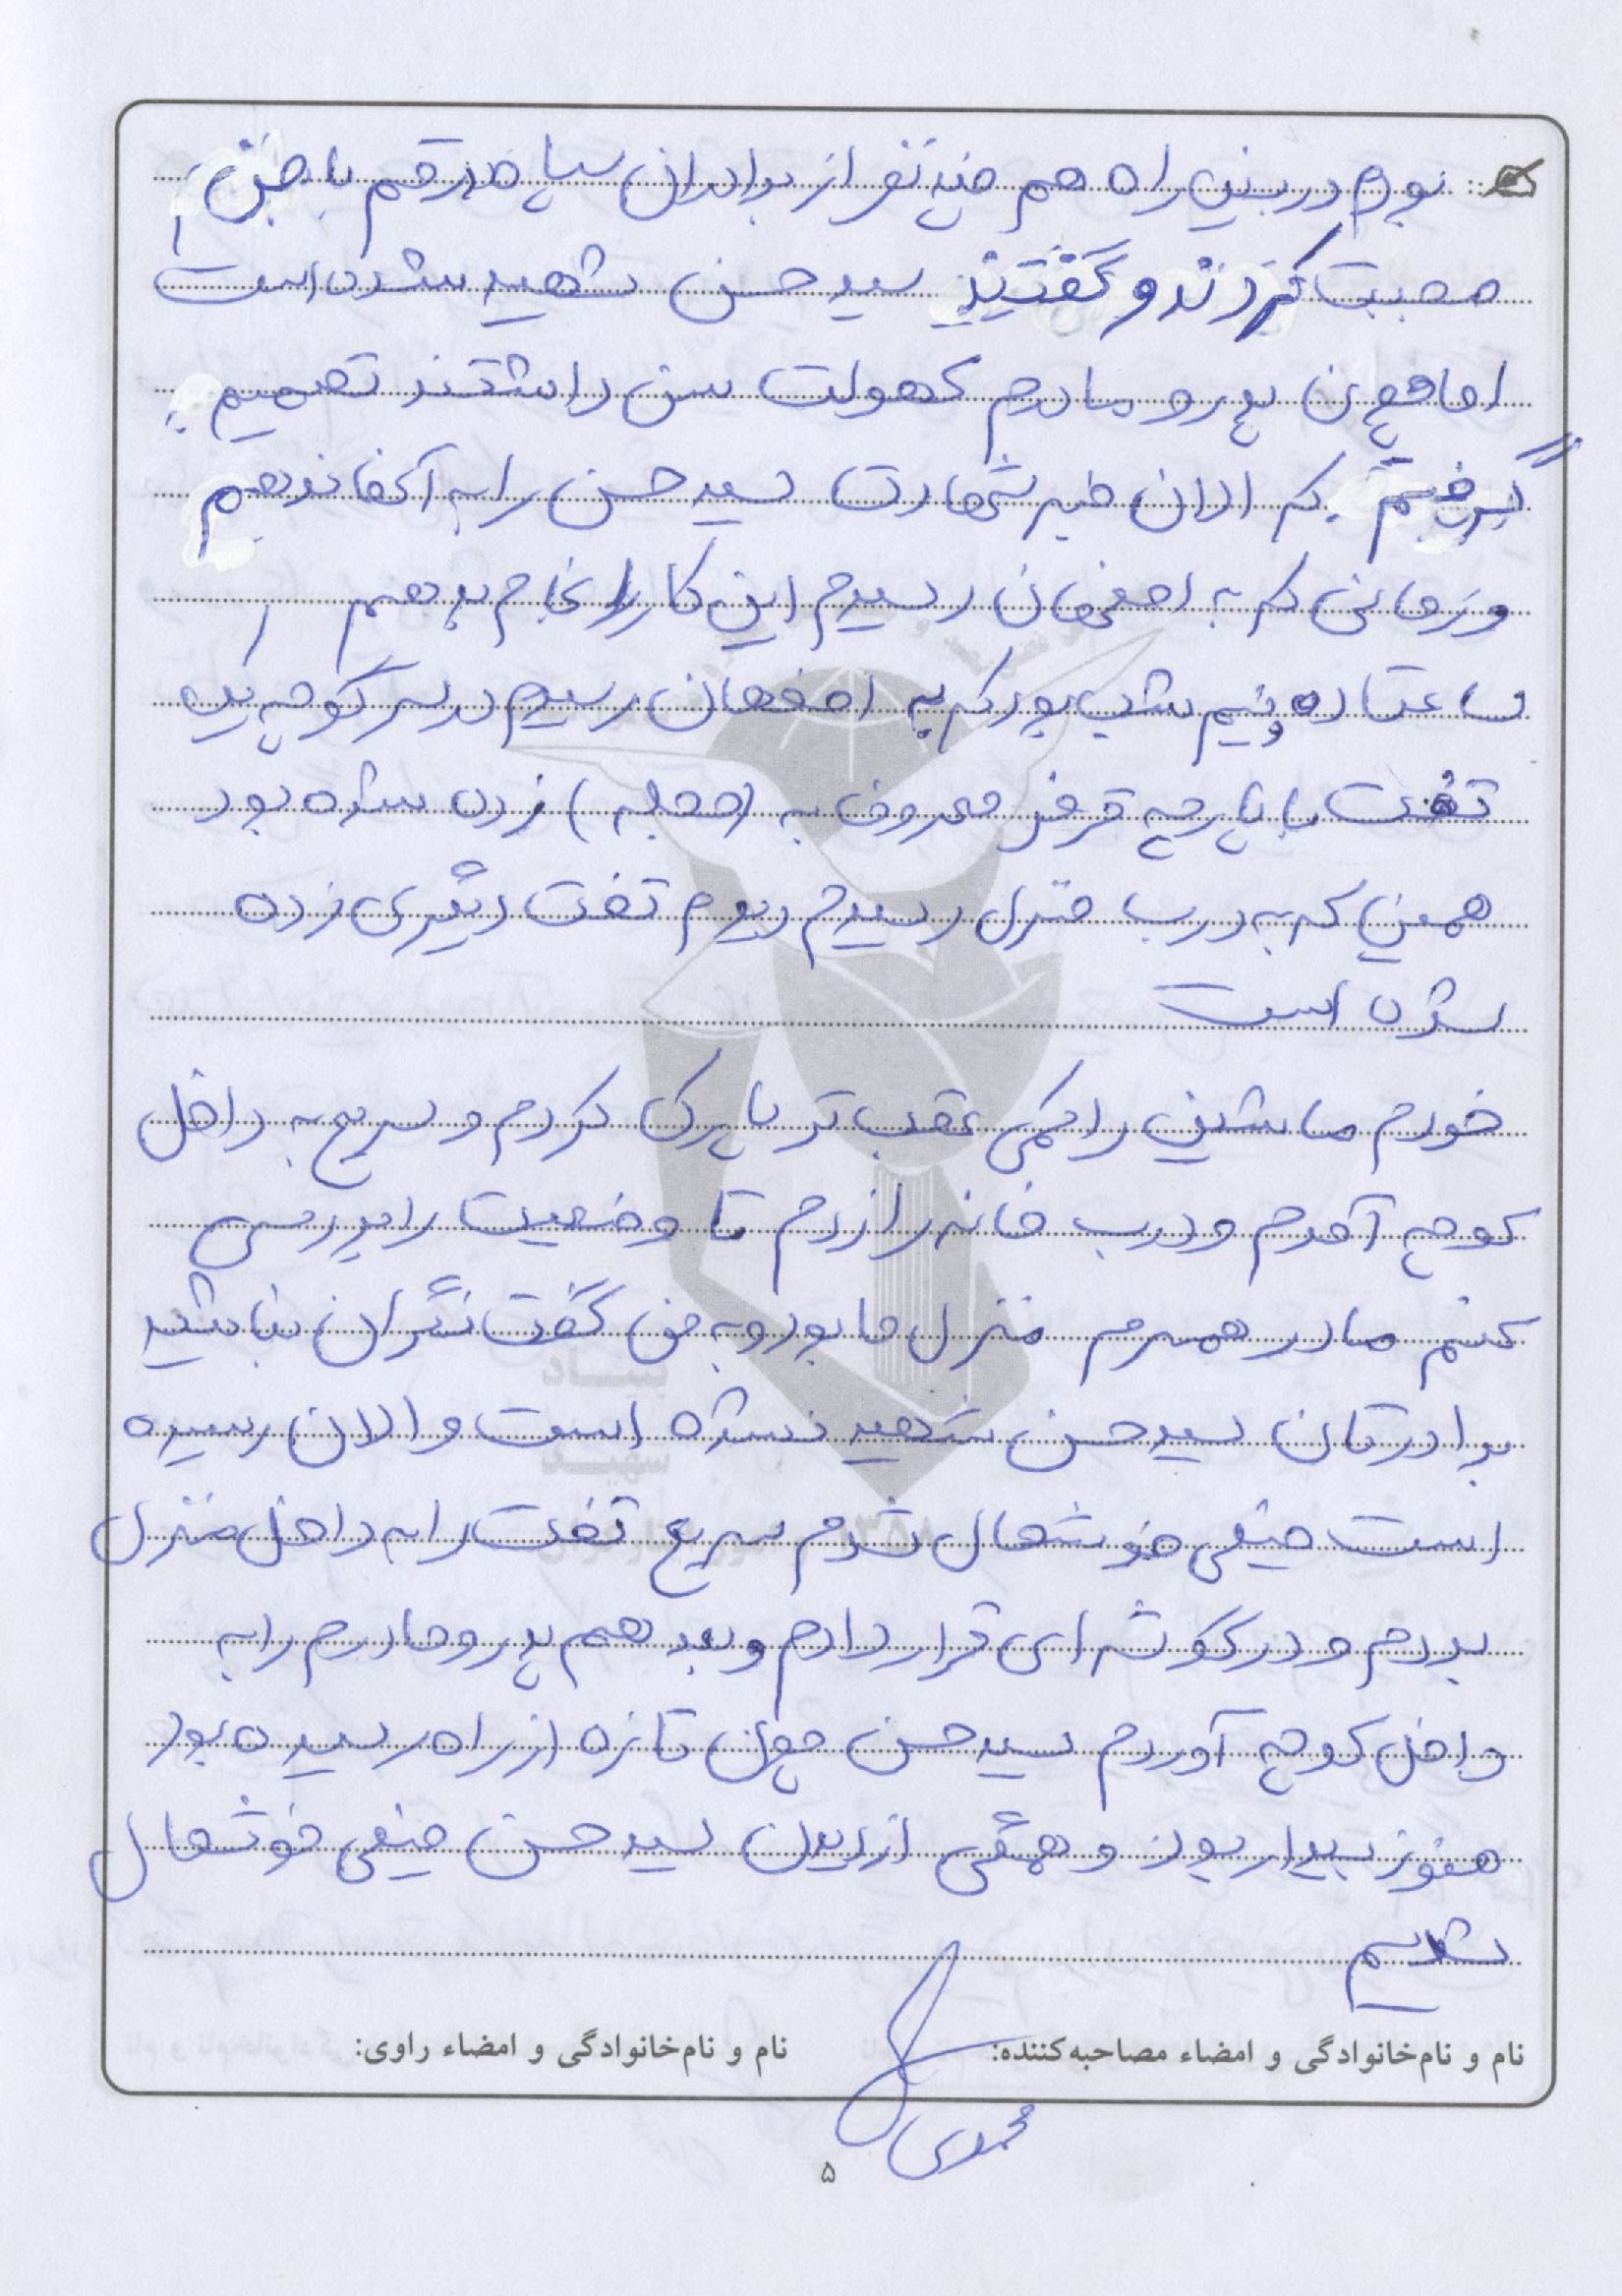 بودم در بین راه هم چند نفر از برادران سپاه در قم با من
صحبت کردند و گفتند سید حسن شهید شده است
اما چون پدر و مادرم کهولت سن داشتند تصمیم
گرفتیم که الان خبر شهادت سید حسن را به آنها ندهیم
و زمانی که به اصفهان رسیدم این کار را انجام بدهیم
ساعت ده و نیم شب بود که به اصفهان رسیدم در سر کوچه یک
تخت با پارچه قرمز معروف به (حجله) زده شده بود
همین که به درب منزل رسیدم دیدم تخت دیگری زده
شده است
خودم ماشین را کمی عقب تر پارک کردم و سریع به داخل
کوچه آمدم و درب خانه را زدم تا وضعیت را بررسی
کنم مادر همسرم منزل ما بود و به من گفت نگران نباشید
برادرتان سید حسن شهید نشده است و الان رسیده
است خیلی خوشحال شدم سریع تخت را به داخل منزل
بردم و در گوشه ای قرار دادم و بعد هم پدر و مادرم را به
داخل کوچه آوردم سید حسن چون تازه از راه رسیده بود
هنوز بیدار بود و همگی از دیدن سید حسن خیلی خوشحال
شدیم
نام و نام‌خانوادگی و امضاء مصاحبه‌کننده:
نام و نام‌خانوادگی و امضاء راوی:
محمدی
۵